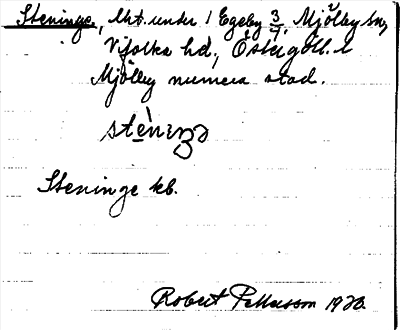 Steninge, lht. under 1 Egeby 3/7, Mjölby sn,
Vifolka hd, Östergötl. l
Mjölby numera stad.
Steninge kb.
Robert Pettersson 1920.